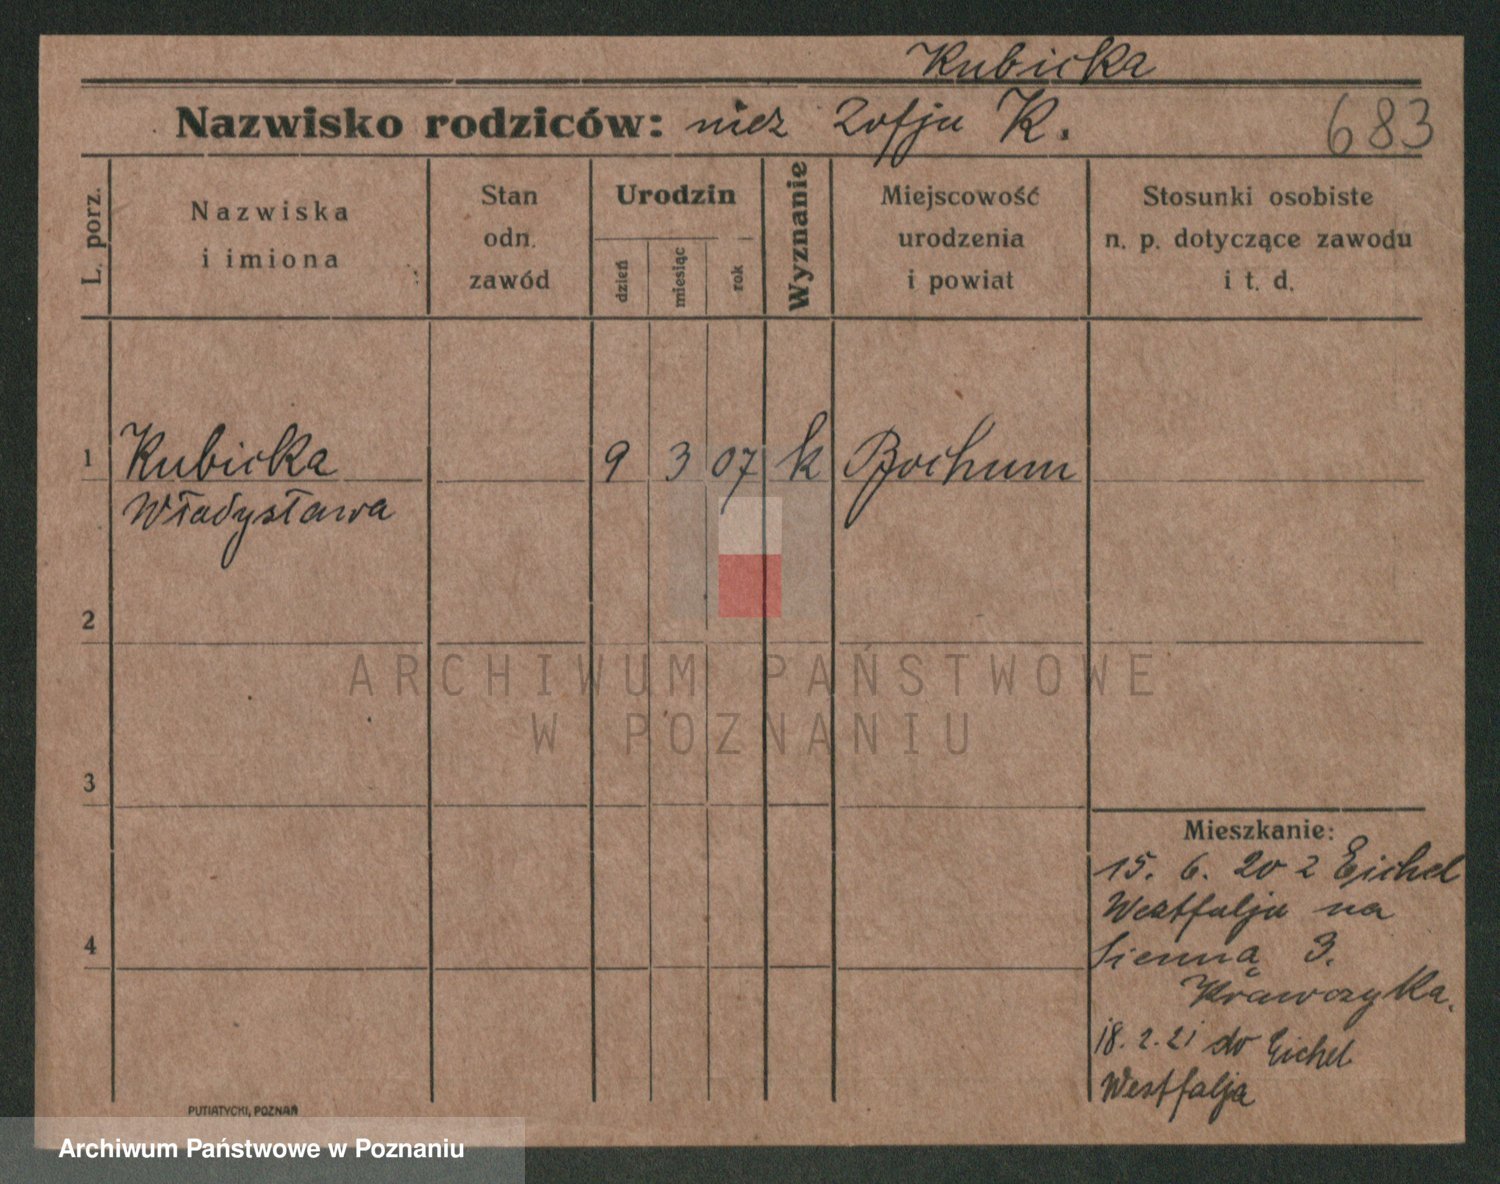 Kubicka
Nazwisko rodziców: niez Zofja K.
683
L. porz.
Nazwiska
i imiona
Stan
odn.
zawód
Urodzin
dzień
miesiąc
rok
Wyznanie
Miejscowość
urodzenia
i powiat
Stosunki osobiste
n. p. dotyczące zawodu
i t. d.
1 Kubicka 9 3 07 k Bochum
Władysława
2
ARCHIWUM PAŃSTWOWE
W POZNANIU
3
Mieszkanie:
15. 6. 20 z Eichel
Westfalja na
4
Sienną 3.
Krawczyka.
18. 2. 21 do Eichel
Westfalja
PUTIATYCKI, POZNAŃ
Archiwum Państwowe w Poznaniu